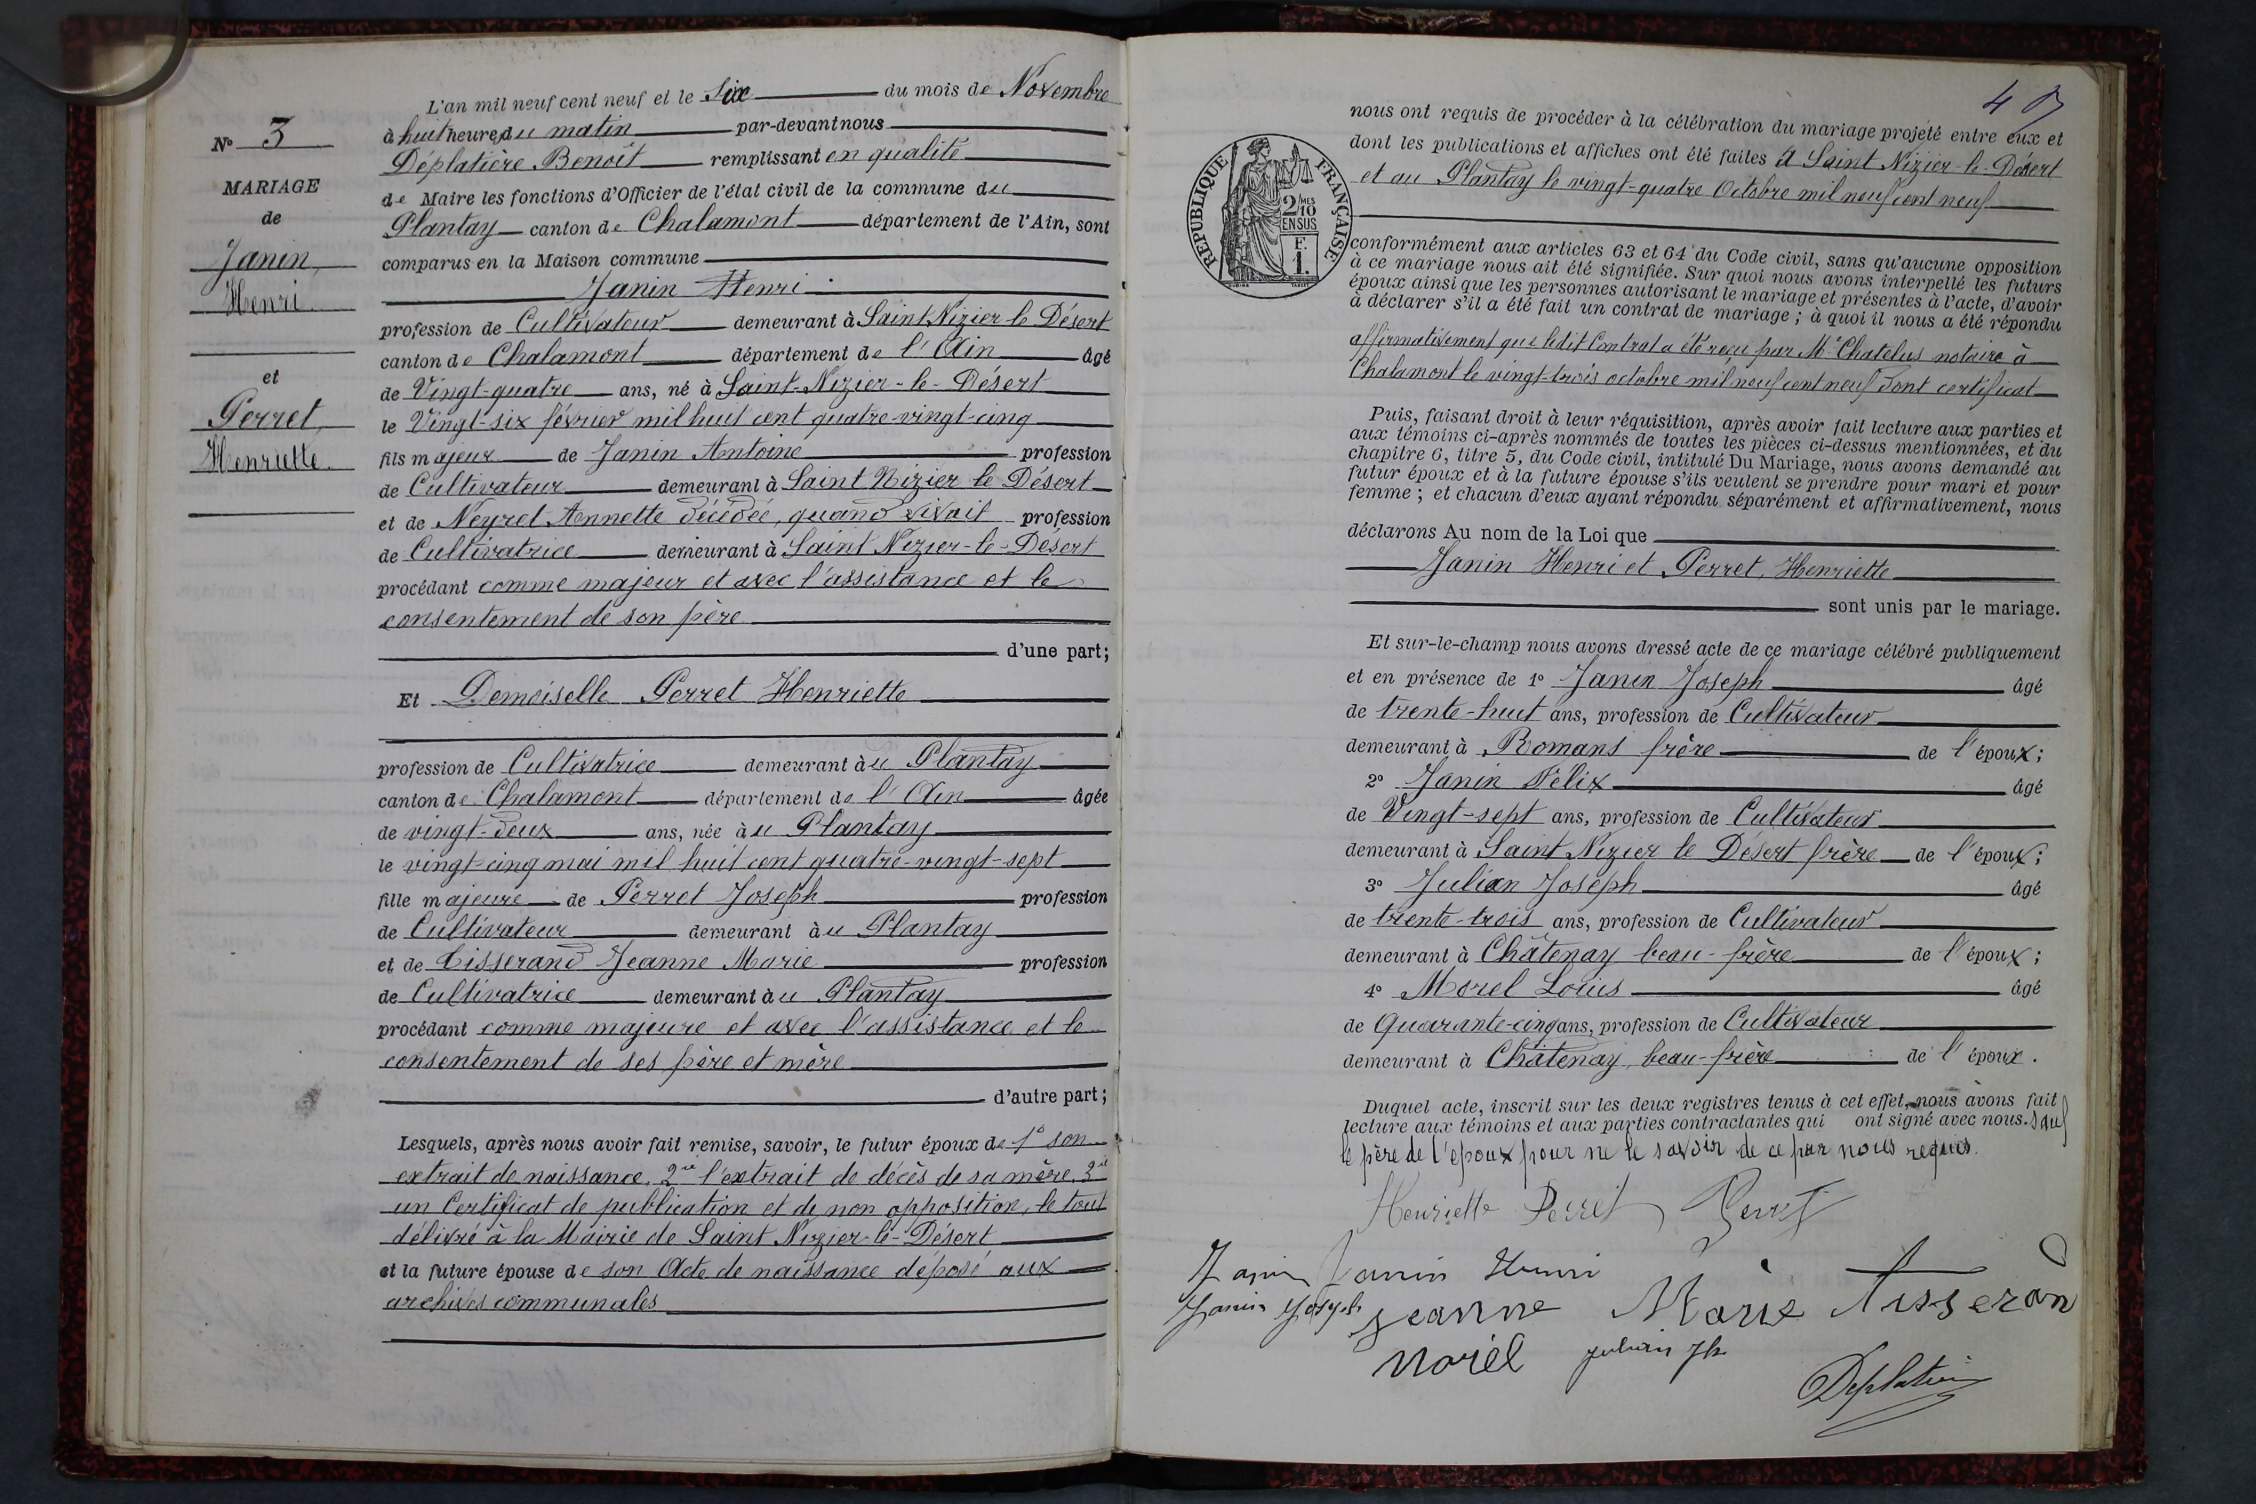 L'an mil neuf cent neuf et le Six du mois de Novembre
à huit heures du matin par-devant nous
Déplatière Benoît remplissant en qualité
de Maire les fonctions d'Officier de l'état civil de la commune du
Plantay canton de Chalamont département de l'Ain, sont
comparus en la Maison commune
Janin Henri
profession de Cultivateur demeurant à Saint Nizier le Désert
canton de Chalamont département de l'Ain âgé
de Vingt-quatre ans, né à Saint-Nizier-le-Désert
le Vingt-six février mil huit cent quatre-vingt-cinq
fils majeur de Janin Antoine profession
de Cultivateur demeurant à Saint Nizier le Désert
et de Neyret Annette décédée, quand vivait profession
de Cultivatrice demeurant à Saint Nizier-le-Désert
procédant comme majeur et avec l'assistance et le
consentement de son père
d'une part;
Et Demoiselle Perret Henriette
profession de Cultivatrice demeurant àu Plantay
canton de Chalamont département de l'Ain âgée
de vingt-deux ans, née àu Plantay
le vingt-cinq mai mil huit cent quatre-vingt-sept
fille majeure de Perret Joseph profession
de Cultivateur demeurant àu Plantay
et de Tisserand Jeanne Marie profession
de Cultivatrice demeurant àu Plantay
procédant comme majeure et avec l'assistance et le
consentement de ses père et mère
d'autre part;
Lesquels, après nous avoir fait remise, savoir, le futur époux de 1° son
extrait de naissance, 2nt l'extrait de décès de sa mère, 3nt
un Certificat de publication et de non opposition, le tout
délivré à la Mairie de Saint Nizier-le-Désert
et la future épouse de son Acte de naissance déposé aux
archives communales
N° 3
MARIAGE
de
Janin,
Henri
et
Perret,
Henriette
4
RÉPUBLIQUE FRANÇAISE
2/10 MES
EN SUS
F.
1.
nous ont requis de procéder à la célébration du mariage projeté entre eux et
dont les publications et affiches ont été faites à Saint Nizier-le-Désert
et au Plantay le vingt-quatre Octobre mil neuf cent neuf
conformément aux articles 63 et 64 du Code civil, sans qu'aucune opposition
à ce mariage nous ait été signifiée. Sur quoi nous avons interpellé les futurs
époux ainsi que les personnes autorisant le mariage et présentes à l'acte, d'avoir
à déclarer s'il a été fait un contrat de mariage; à quoi il nous a été répondu
affirmativement que ledit Contrat a été reçu par Me Chatelus notaire à
Chalamont le vingt-trois octobre mil neuf cent neuf dont certificat
Puis, faisant droit à leur réquisition, après avoir fait lecture aux parties et
aux témoins ci-après nommés de toutes les pièces ci-dessus mentionnées, et du
chapitre 6, titre 5, du Code civil, intitulé Du Mariage, nous avons demandé au
futur époux et à la future épouse s'ils veulent se prendre pour mari et pour
femme; et chacun d'eux ayant répondu séparément et affirmativement, nous
déclarons Au nom de la Loi que
Janin Henri et Perret, Henriette
sont unis par le mariage.
Et sur-le-champ nous avons dressé acte de ce mariage célébré publiquement
et en présence de 1° Janin Joseph âgé
de trente-huit ans, profession de Cultivateur
demeurant à Romans frère de l'époux;
2° Janin Félix âgé
de Vingt-sept ans, profession de Cultivateur
demeurant à Saint Nizier le Désert frère de l'époux;
3° Julian Joseph âgé
de trente-trois ans, profession de Cultivateur
demeurant à Châtenay beau-frère de l'époux;
4° Morel Louis âgé
de Quarante-cinq ans, profession de Cultivateur
demeurant à Châtenay, beau-frère de l'époux.
Duquel acte, inscrit sur les deux registres tenus à cet effet, nous avons fait
lecture aux témoins et aux parties contractantes qui ont signé avec nous. sauf
le père de l'époux pour ne le savoir de ce par nous requis.
Henriette Perret Perret
Janin Janin Henri
Janin Joseph Jeanne Marie Tisseran
Morel julian Jh
Déplatière